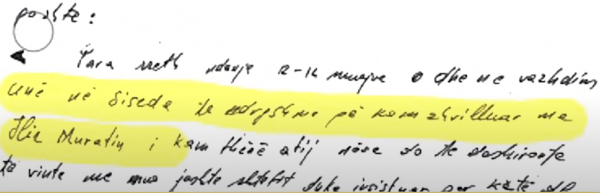 poshte:
Para rreth ndaje 12-14 muajve e dhe ne vazhdim
unë në bisedë të ndryshme që kam zhvilluar me
Ilir Muratin i kam thënë atij nëse do të dëshironte
të vinte me mua jashte shtetit duke insistuar per këtë